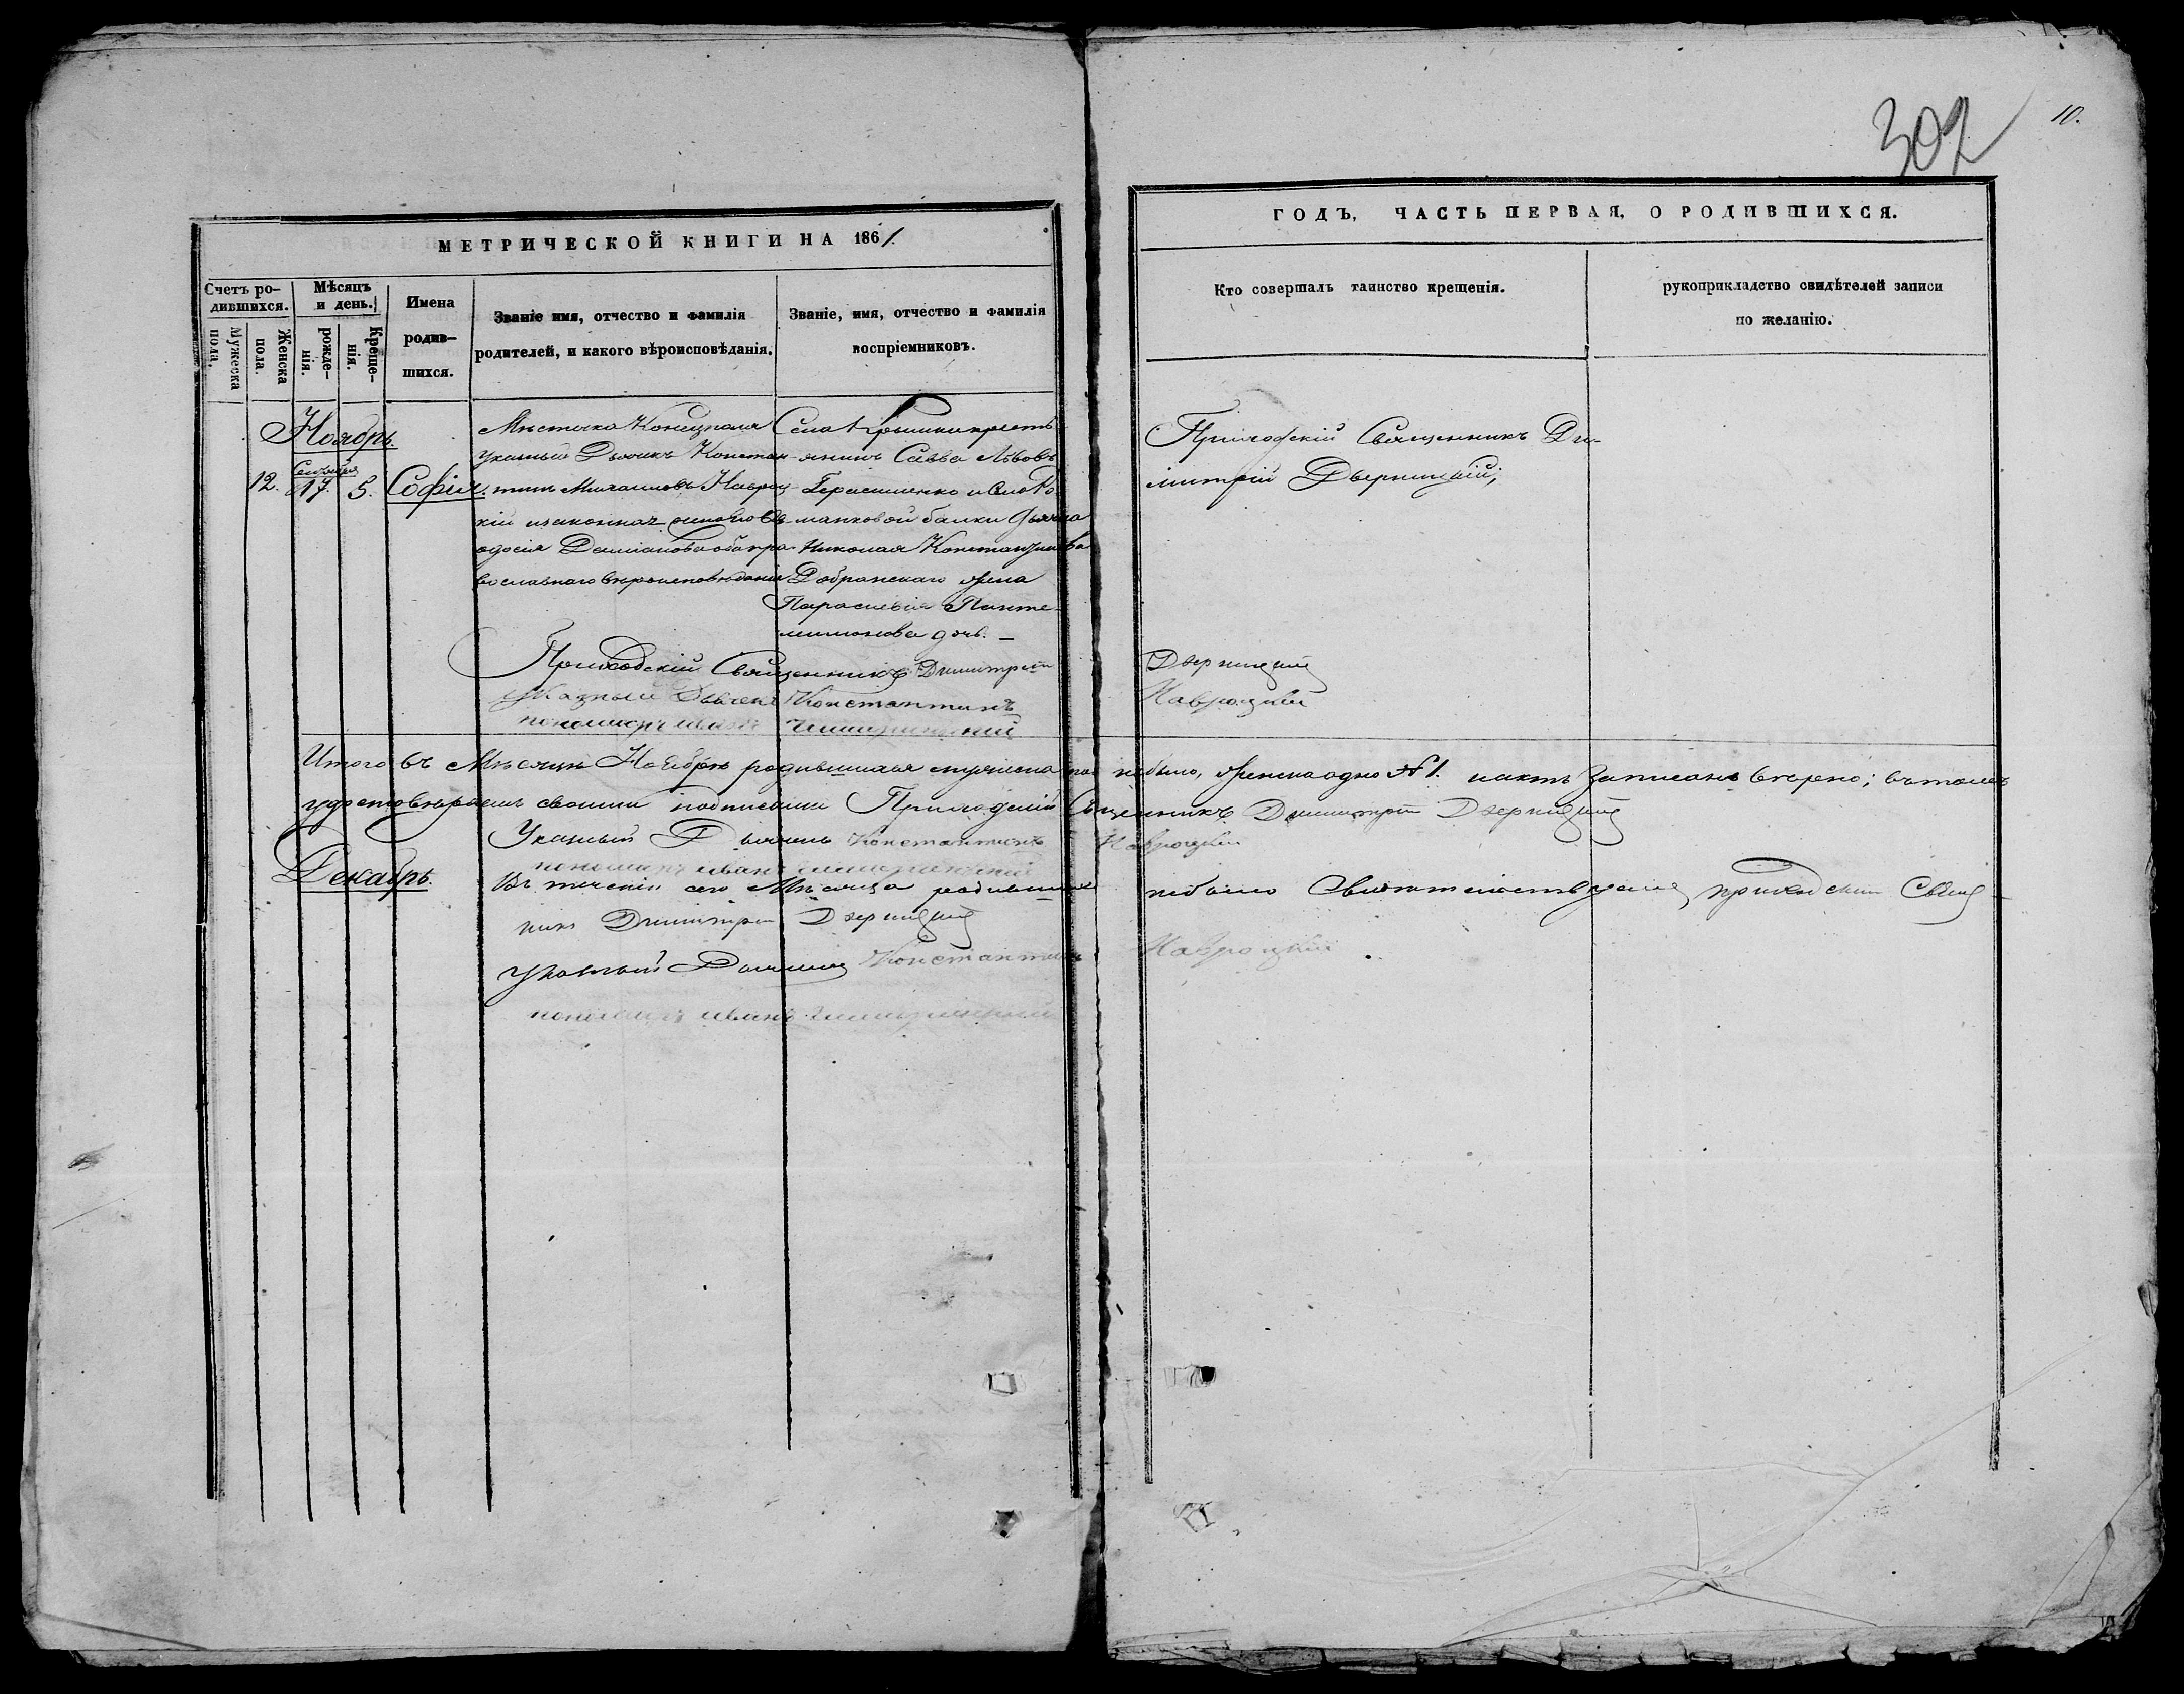 302
10.
МЕТРИЧЕСКОЙ КНИГИ НА 1861.
ГОДЪ, ЧАСТЬ ПЕРВАЯ, О РОДИВШИХСЯ.
Счетъ ро-
дившихся.
Мужеска
пола.
Женска
пола.
Мѣсяцъ
и день.
рожде-
нія.
Креще-
нія.
Имена
родив-
шихся.
Званіе имя, отчество и фамилія
родителей, и какого вѣроисповѣданія.
Званіе, имя, отчество и фамилія
воспріемниковъ.
Кто совершалъ таинство крещенія.
рукоприкладство свидѣтелей записи
по желанію.
Ноябрь.
12.
17.
5.
Софія.
Мѣстечка Конецполя
указный Дьячекъ Констан-
тинъ Михаиловъ Навроц-
кій и законная жена его Ѳе-
одосія Даміанова оба пра-
вославнаго вѣроисповѣданія
Села Крымки кресть-
янинъ Савва Львовъ
Герасименко и
балки Дьячка
Николая Константинова
Добранскаго жена
Параскевія Панте-
лимонова дочь. —
Приходскій Священникъ Ди-
митрій Дверницкій;
Приходскій Священникъ Димитрій Дверницкій
Указный Дьячекъ Константинъ Навроцкій
пономарь Иванъ
Итого въ Мѣсяцѣ Ноябрѣ родившихся мужеска пола небыло, женска одно № 1. и актъ записанъ вѣрно; въ томъ
удостовѣряемъ своими подписями Приходскій Священникъ Димитрій Дверницкій
Указный Дьячекъ Константинъ Навроцкій
пономарь Иванъ
Декабрь.
Въ теченіи сего Мѣсяца родившихся небыло Свидѣтельствуемъ приходскій Свящ-
никъ Димитрій Дверницкій
Указный Дьячекъ Константинъ Навроцкій
пономарь Иванъ